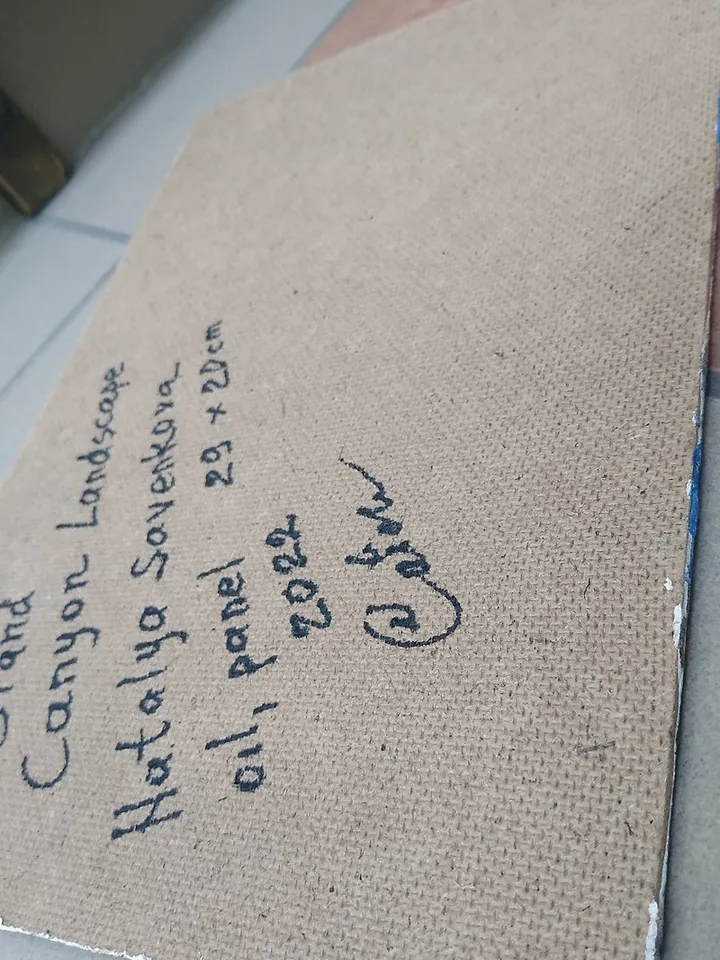 Grand
Canyon Landscape
Natalya Savenkova
oil, panel 29 x 20 cm
2022